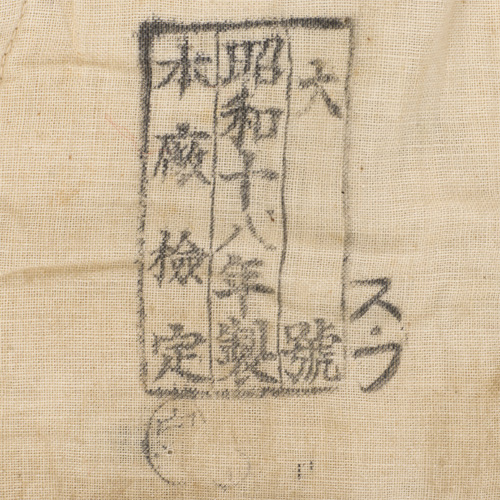 大號
昭和十八年製
本廠檢定
ス.フ